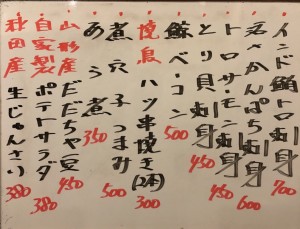 インド鮪トロ刺身 700
かんぱち刺身 600
トロサーモン刺身 450
とり貝刺身 450
鯨ベーコン 500
焼鳥 ハツ串焼き(2本) 300
煮穴子つまみ 500
あら煮 350
山形産 だだちゃ豆 450
自家製 ポテトサラダ 380
秋田産 生じゅんさい 380